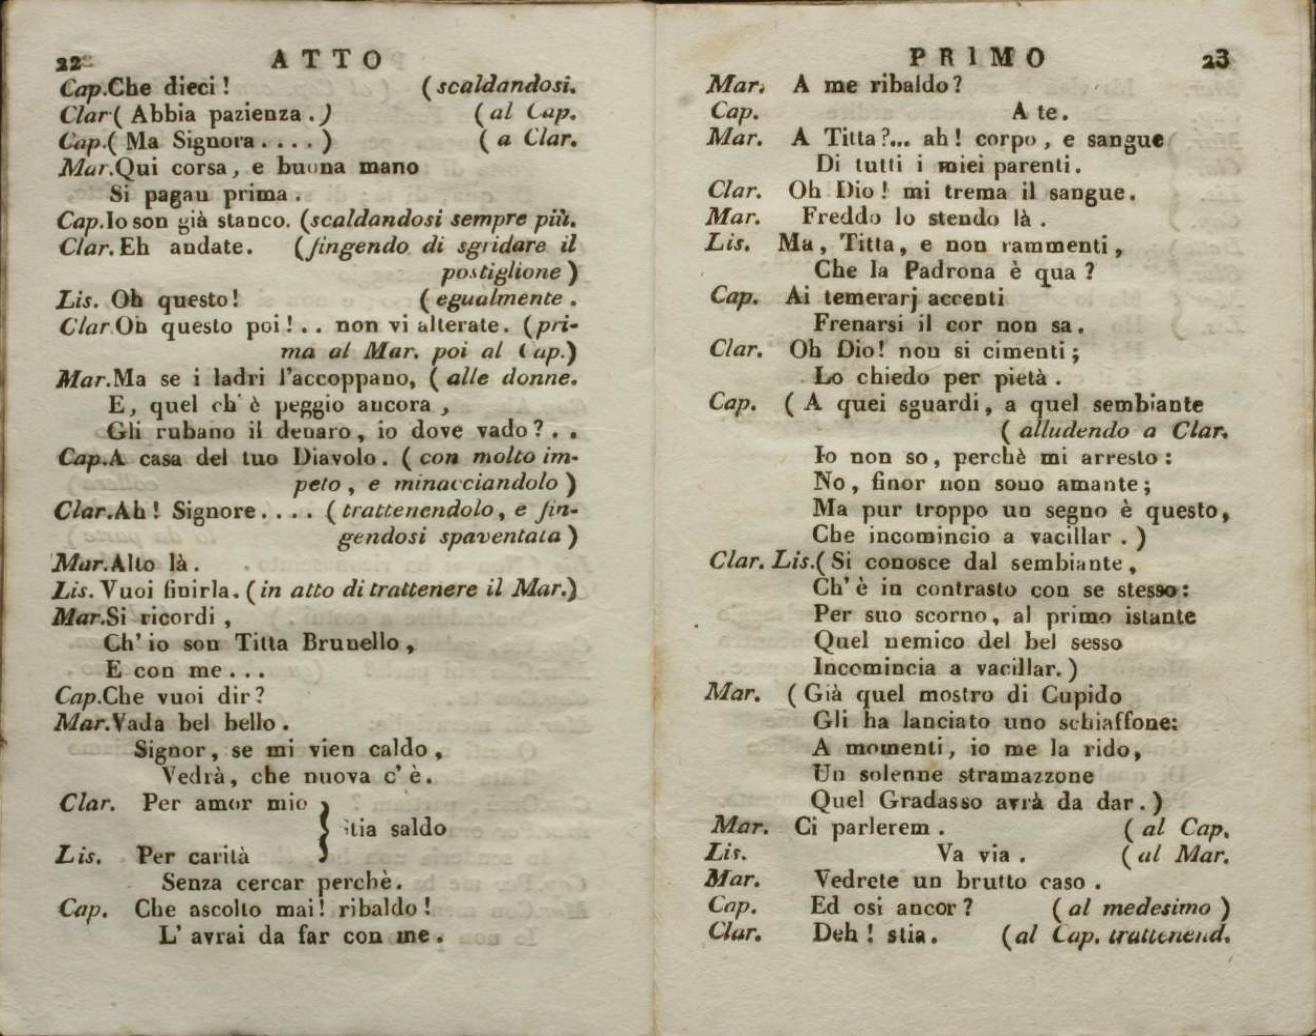 22 ATTO
Cap. Che dieci! (scaldandosi.
Clar. (Abbia pazienza.) (al Cap.
Cap. (Ma Signora....) (a Clar.
Mar. Qui corsa, e buona mano
Si pagan prima.
Cap. Io son già stanco. (scaldandosi sempre più.
Clar. Eh andate. (fingendo di sgridare il
postiglione)
Lis. Oh questo! (egualmente.
Clar Oh questo poi!.. non vi alterate. (pri-
ma al Mar. poi al Cap.)
Mar. Ma se i ladri l'accoppano, (alle donne.
E, quel ch'è peggio ancora,
Gli rubano il denaro, io dove vado?..
Cap. A casa del tuo Diavolo. (con molto im-
peto, e minacciandolo)
Clar. Ah! Signore.... (trattenendolo, e fin-
gendosi spaventata)
Mar. Alto là.
Lis. Vuoi finirla. (in atto di trattenere il Mar.)
Mar. Si ricordi,
Ch'io son Titta Brunello,
E con me...
Cap. Che vuoi dir?
Mar. Vada bel bello.
Signor, se mi vien caldo,
Vedrà, che nuova c'è.
Clar. Per amor mio
} stia saldo
Lis. Per carità
Senza cercar perchè.
Cap. Che ascolto mai! ribaldo!
L'avrai da far con me.
PRIMO 23
Mar. A me ribaldo?
Cap. A te.
Mar. A Titta?... ah! corpo, e sangue
Di tutti i miei parenti.
Clar. Oh Dio! mi trema il sangue.
Mar. Freddo lo stendo là.
Lis. Ma, Titta, e non rammenti,
Che la Padrona è qua?
Cap. Ai temerarj accenti
Frenarsi il cor non sa.
Clar. Oh Dio! non si cimenti;
Lo chiedo per pietà.
Cap. (A quei sguardi, a quel sembiante
(alludendo a Clar.
Io non so, perchè mi arresto:
No, finor non sono amante;
Ma pur troppo un segno è questo,
Che incomincio a vacillar.)
Clar. Lis. (Si conosce dal sembiante,
Ch'è in contrasto con se stesso:
Per suo scorno, al primo istante
Quel nemico del bel sesso
Incomincia a vacillar.)
Mar. (Già quel mostro di Cupido
Gli ha lanciato uno schiaffone:
A momenti, io me la rido,
Un solenne stramazzone
Quel Gradasso avrà da dar.)
Mar. Ci parlerem. (al Cap.
Lis. Va via. (al Mar.
Mar. Vedrete un brutto caso.
Cap. Ed osi ancor? (al medesimo)
Clar. Deh! stia. (al Cap. trattenend.